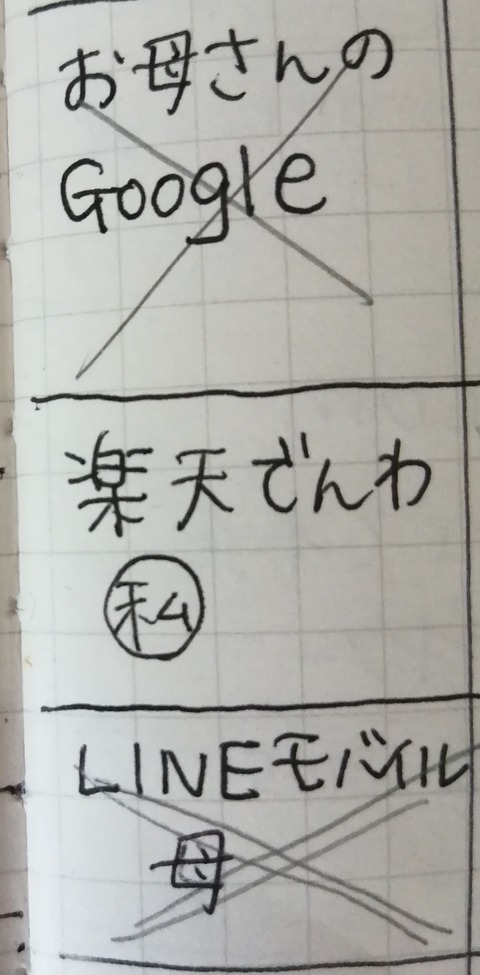 お母さんの
Google
楽天でんわ
私
LINEモバイル
母